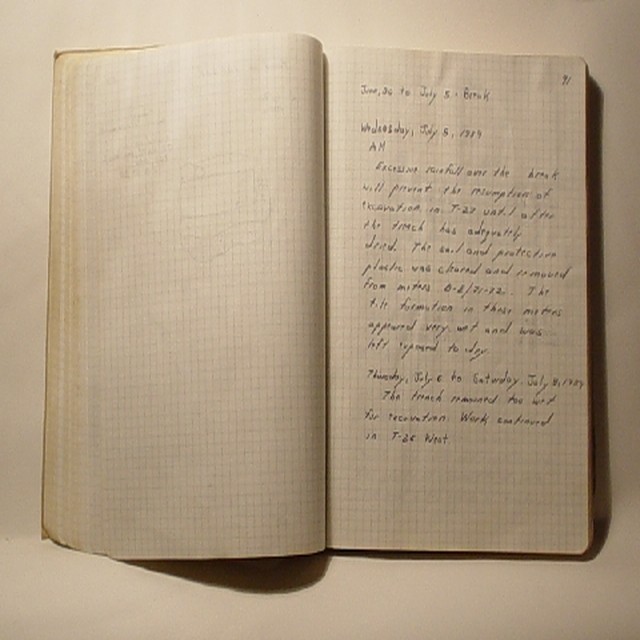 91
June, 30 to July 5 - Break
Wednesday, July 5, 1989
AM
Excessive rainfall over the break
will prevent the resumption of
excavation in T-27 until after
the trench has adequately
dried. The soil and protective
plastic was cleared and removed
from meters The
tile formation in these meters
appeared very wet and was
left exposed to dry.
Thursday, July 6 to Saturday July 8, 1989
The trench remained too wet
for excavation. Work continued
in West